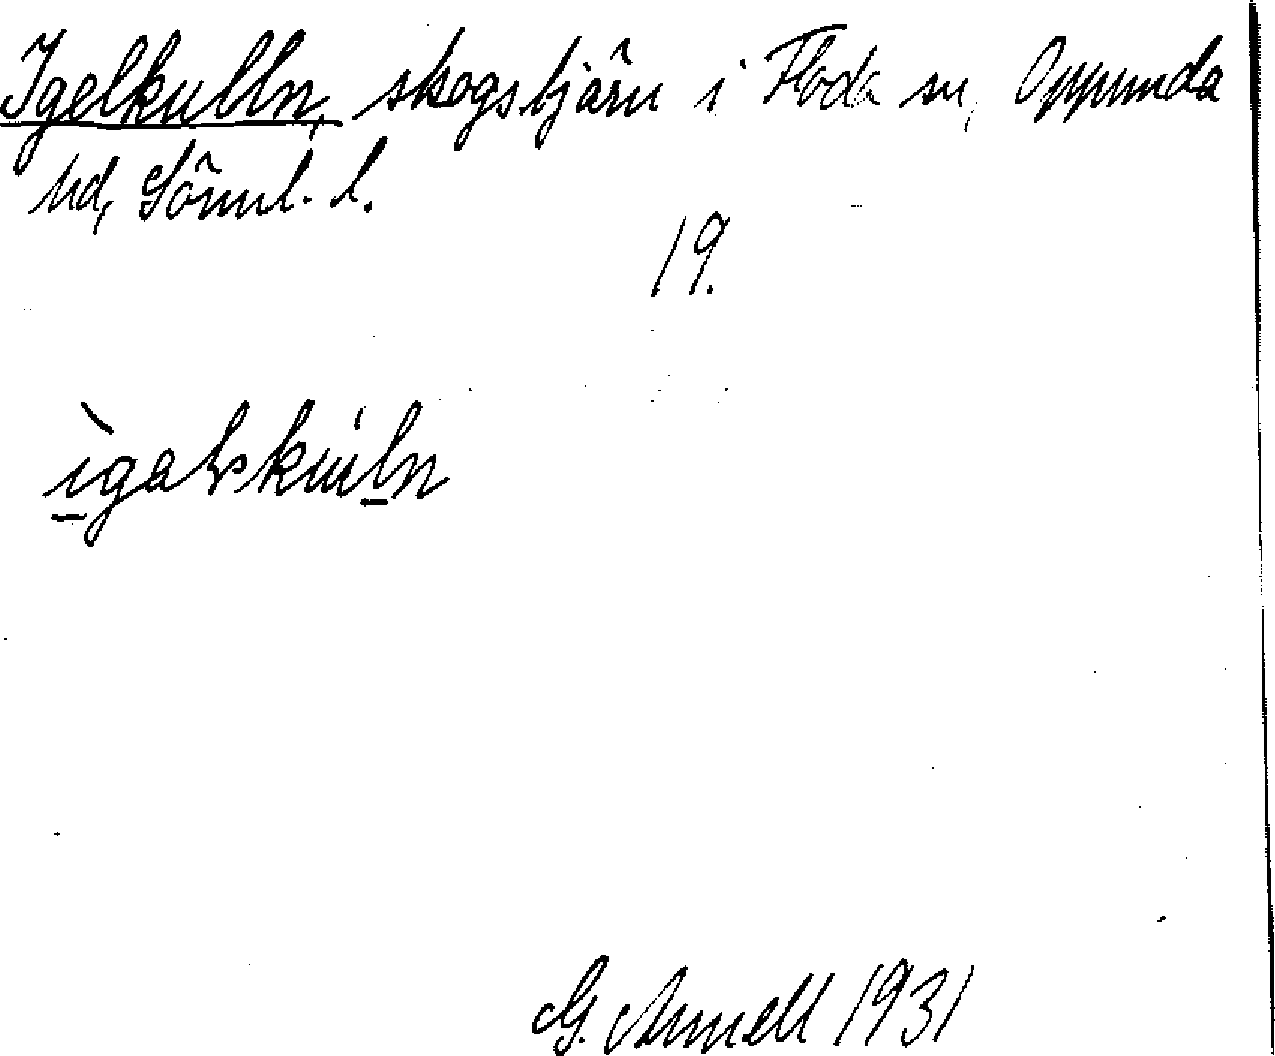 Igelkulln, skogstjärn i Floda sn, Oppunda
hd, Sörml. l.
19.
ìgalskúln
G. Arnell 1931